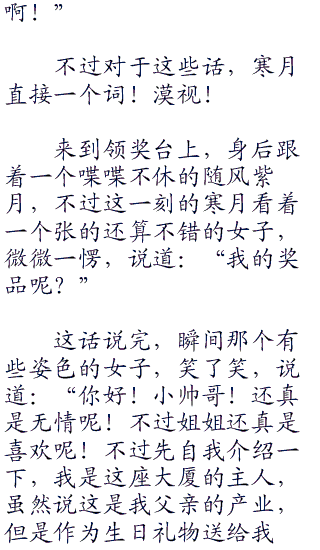 啊！”
不过对于这些话，寒月
直接一个词！漠视！
来到领奖台上，身后跟
着一个喋喋不休的随风紫
月，不过这一刻的寒月看着
一个张的还算不错的女子，
微微一愣，说道：“我的奖
品呢？”
这话说完，瞬间那个有
些姿色的女子，笑了笑，说
道：“你好！小帅哥！还真
是无情呢！不过姐姐还真是
喜欢呢！不过先自我介绍一
下，我是这座大厦的主人，
虽然说这是我父亲的产业，
但是作为生日礼物送给我